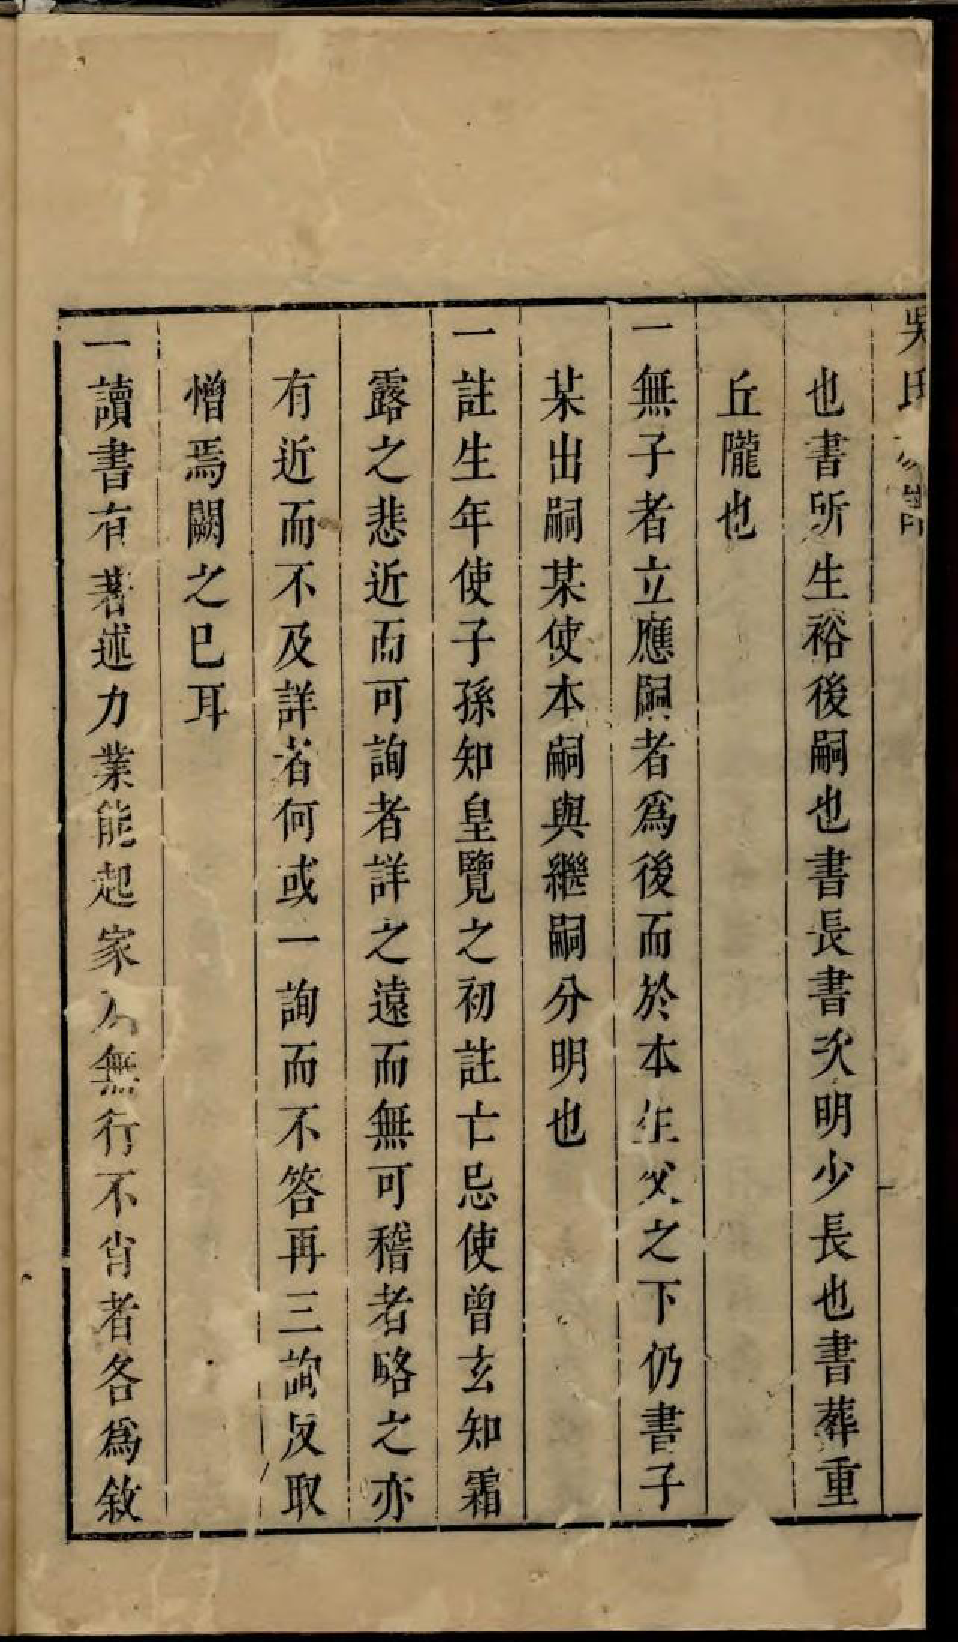 吳氏
也書所生裕後嗣也書長書次明少長也書葬重
丘隴也
一無子者立應嗣者爲後而於本生父之下仍書子
某出嗣某使本嗣與繼嗣分明也
一註生年使子孫知皇覽之初註亡忌使曾玄知霜
露之悲近而可詢者詳之遠而無可稽者略之亦
有近而不及詳者何或一詢而不答再三詢反取
憎焉闕之巳耳
一讀書有著述力業能起家人無行不肖者各爲敘